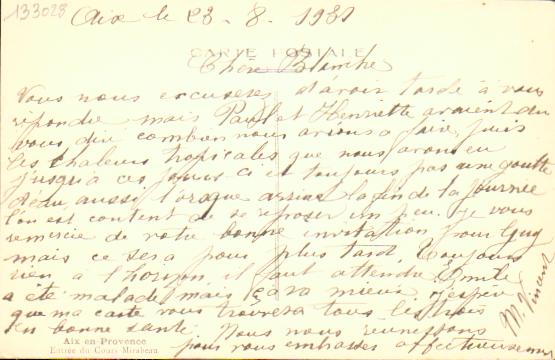 133028
Aix le 23-8-1931
CARTE POSTALE
Chère Blanche
Vous nous excuserez d'avoir tardé à vous
répondre mais Paul et Henriette avaient du
vous dire combien nous avions a faire, puis
les chaleurs tropicales que nous avons eu
jusqu'a ces jours-ci et toujours pas une goutte
d'eau aussi lorsque arrive la fin de la journée
l'on est content de se reposer un peu. Je vous
remercie de votre bonne invitation pour Guy
mais ce sera pour plus tard. Toujours
rien a l'horizon il faut attendre Emile
a été malade mais ça va mieux. J'espère
que ma carte vous trouvera tous les trois
en bonne santé. Nous nous reunissons
pour vous embrasser affectueusement
M. Vincent
Aix en Provence
Entrée du Cours Mirabeau